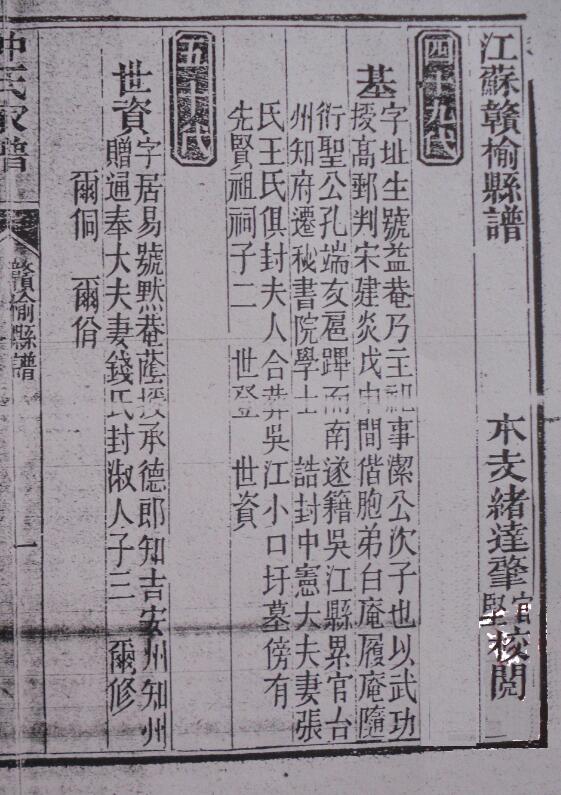 江蘇贛榆縣譜
本支緒達肇官堅校閱
四十九代
基字址生號益菴乃主祀事潔公次子也以武功
授高郵判宋建炎戊申間偕胞弟白庵履庵隨
衍聖公孔端友扈蹕而南遂籍吳江縣累官台
州知府遷秘書院學士 誥封中憲大夫妻張
氏王氏俱封夫人合葬吳江小口圩墓傍有
先賢祖祠子二 世登 世資
五十代
世資字居易號默菴蔭授承德郎知吉安州知州
贈通奉大夫妻錢氏封淑人子三 爾修
爾侗 爾佾
仲氏家譜 贛榆縣譜 一